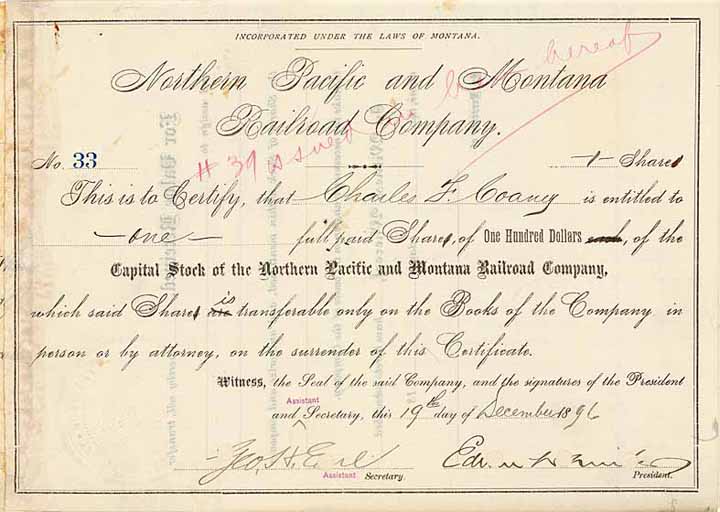 INCORPORATED UNDER THE LAWS OF MONTANA.
Northern Pacific and Montana
Railroad Company.
# 39 issued in lieu hereof
No. 33 1 Shares
This is to Certify, that Charles F. Coaney is entitled to
one full paid Shares, of One Hundred Dollars each, of the
Capital Stock of the Northern Pacific and Montana Railroad Company,
which said Shares are is transferable only on the Books of the Company in
person or by attorney, on the surrender of this Certificate.
Witness, the Seal of the said Company, and the signatures of the President
Assistant
and Secretary, this 19th day of December 1896
Geo. H. Earl
Assistant Secretary. President.